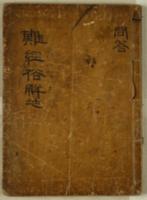 難經俗解
問答